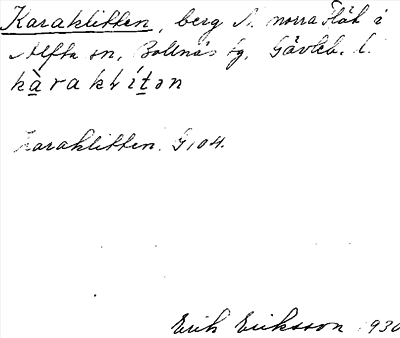 Karaklitten, berg N. norra Flät i
Alfta sn, Bollnäs tg, Gävleb. l.
kàrakłítən
Karaklitten. G 104.
Erik Eriksson 1930